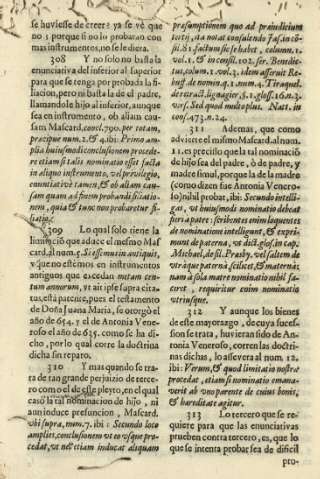 se huviesse de creer? ya se vè que
no; porque si no lo probaran con
mas instrumentos, no se le diera.
308 Y no solo no basta la
enunciativa del inferior al superior
para que se tenga por probada la fi-
liacion, pero ni basta la de el padre,
llamandole hijo al inferior, aunque
sea en instrumento, ob aliam cau-
sam Mascard. concl. 790. per totam,
præcipuè num. 2. & 4. ibi: Primo am-
plia huiusmodi conclusionem procede-
re etiam si talis nominatio esset facta
in aliquo instrumento, vel privilegio,
enuntiativè tamen, & ob aliam cau-
sam quam ad finem probandi filiatio-
nem, quia & tunc non probaretur fi-
liatio.
309 Lo qual solo tiene la
limitacion que aduce el mesmo Mas-
card. al num. 5. Si essemus in antiquis,
y que no estemos en instrumentos
antiguos que excedan metam cen-
tum annorum, vt ait ipse supra cita-
tus, està patente, pues el testamento
de Doña Juana Maria, se otorgò el
año de 654. y el de Antonia Vene-
roso el año de 635. como se ha di-
cho, por lo qual corre la doctrina
dicha sin reparo.
310 Y mas quando se tra-
ta de tan grande perjuizio de terce-
ro como el de este pleyto, en el qual
caso la tal nominacion de hijo, ni
aun induce presuncion, Mascard.
vbi supra, num. 7. ibi: Secundo loco
amplies conclusionem vt eo vsque pro-
cedat, vt nec etiam inducat aliquam
præsumptionem quo ad præiudicium
tertij, ita notat consulendo Iaso. in con-
sil. 81. factum sic se habet, column. 1.
vol. 1. & in consil. 102. ser. Benedic-
tus, colum. 1. vol. 3. idem asseruit Re-
buf. de nomin. q. 1. num. 4. Tiraquel.
de retract. lignagier, §. 1. gloss. 16. n. 3.
vers. Sed quod modo plus. Natt. in
cons. 473. n. 24.
311 Ademas, que como
advierte el mismo Mascard. al num.
11. es preciso que la tal nominacio
de hijo sea del padre, ò de padre, y
madre simul, porque la de la madre
(como dizen fue Antonia Venero-
so) nihil probat, ibi: Secundo intelli-
gas, vt huiusmodi nominatio debeat
fieri à patre; scribentes enim loquentes
de nominatione intelligunt, & expri-
munt de paterna, vt dict. glos. in cap.
Michael, de fil. Præsby. vel saltem de
vtriusque paterna scilicet, & materna;
nam à sola matre nominatio nihil fa-
ceret, requiritur enim nominatio
vtriusque.
312 Y aunque los bienes
de este mayorazgo, de cuya succes-
sion se trata, huvieran sido de An-
tonia Veneroso, corren las doctri-
nas dichas, lo assevera al num. 12.
ibi: Verum, & quod limitatio nostra
procedat, etiam si nominatio emana-
verit ab vno parente de cuius bonis,
& hæreditate agitur.
313 Lo tercero que se re-
quiere para que las enunciativas
prueben contra tercero, es, que lo
que se intenta probar sea de dificil
pro-